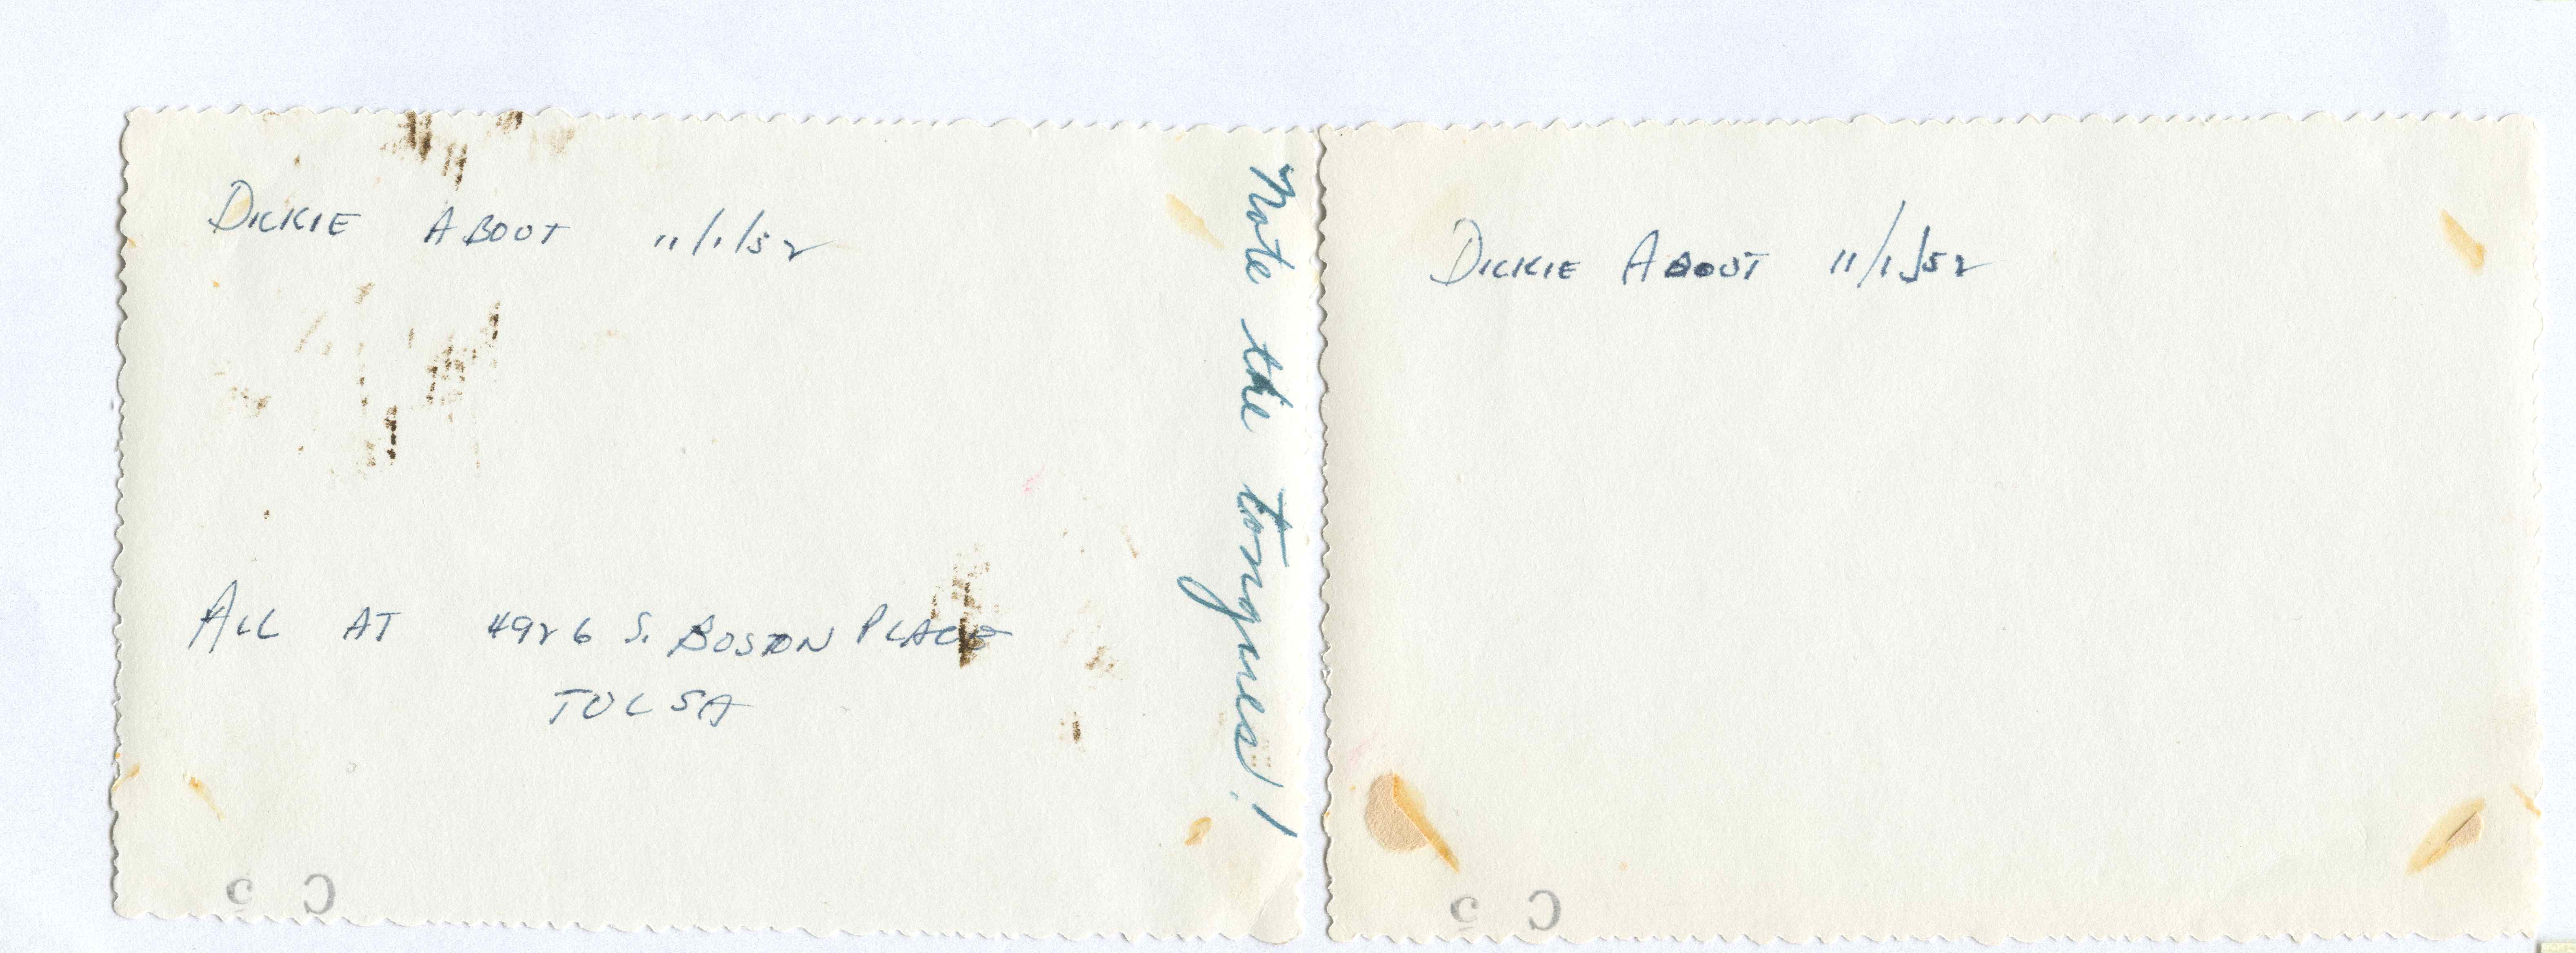 DICKIE ABOUT 11/1/52
ALL AT 4926 S. BOSTON PLACE
TULSA
Note the tongues!
C 5
DICKIE ABOUT 11/1/52
C 5